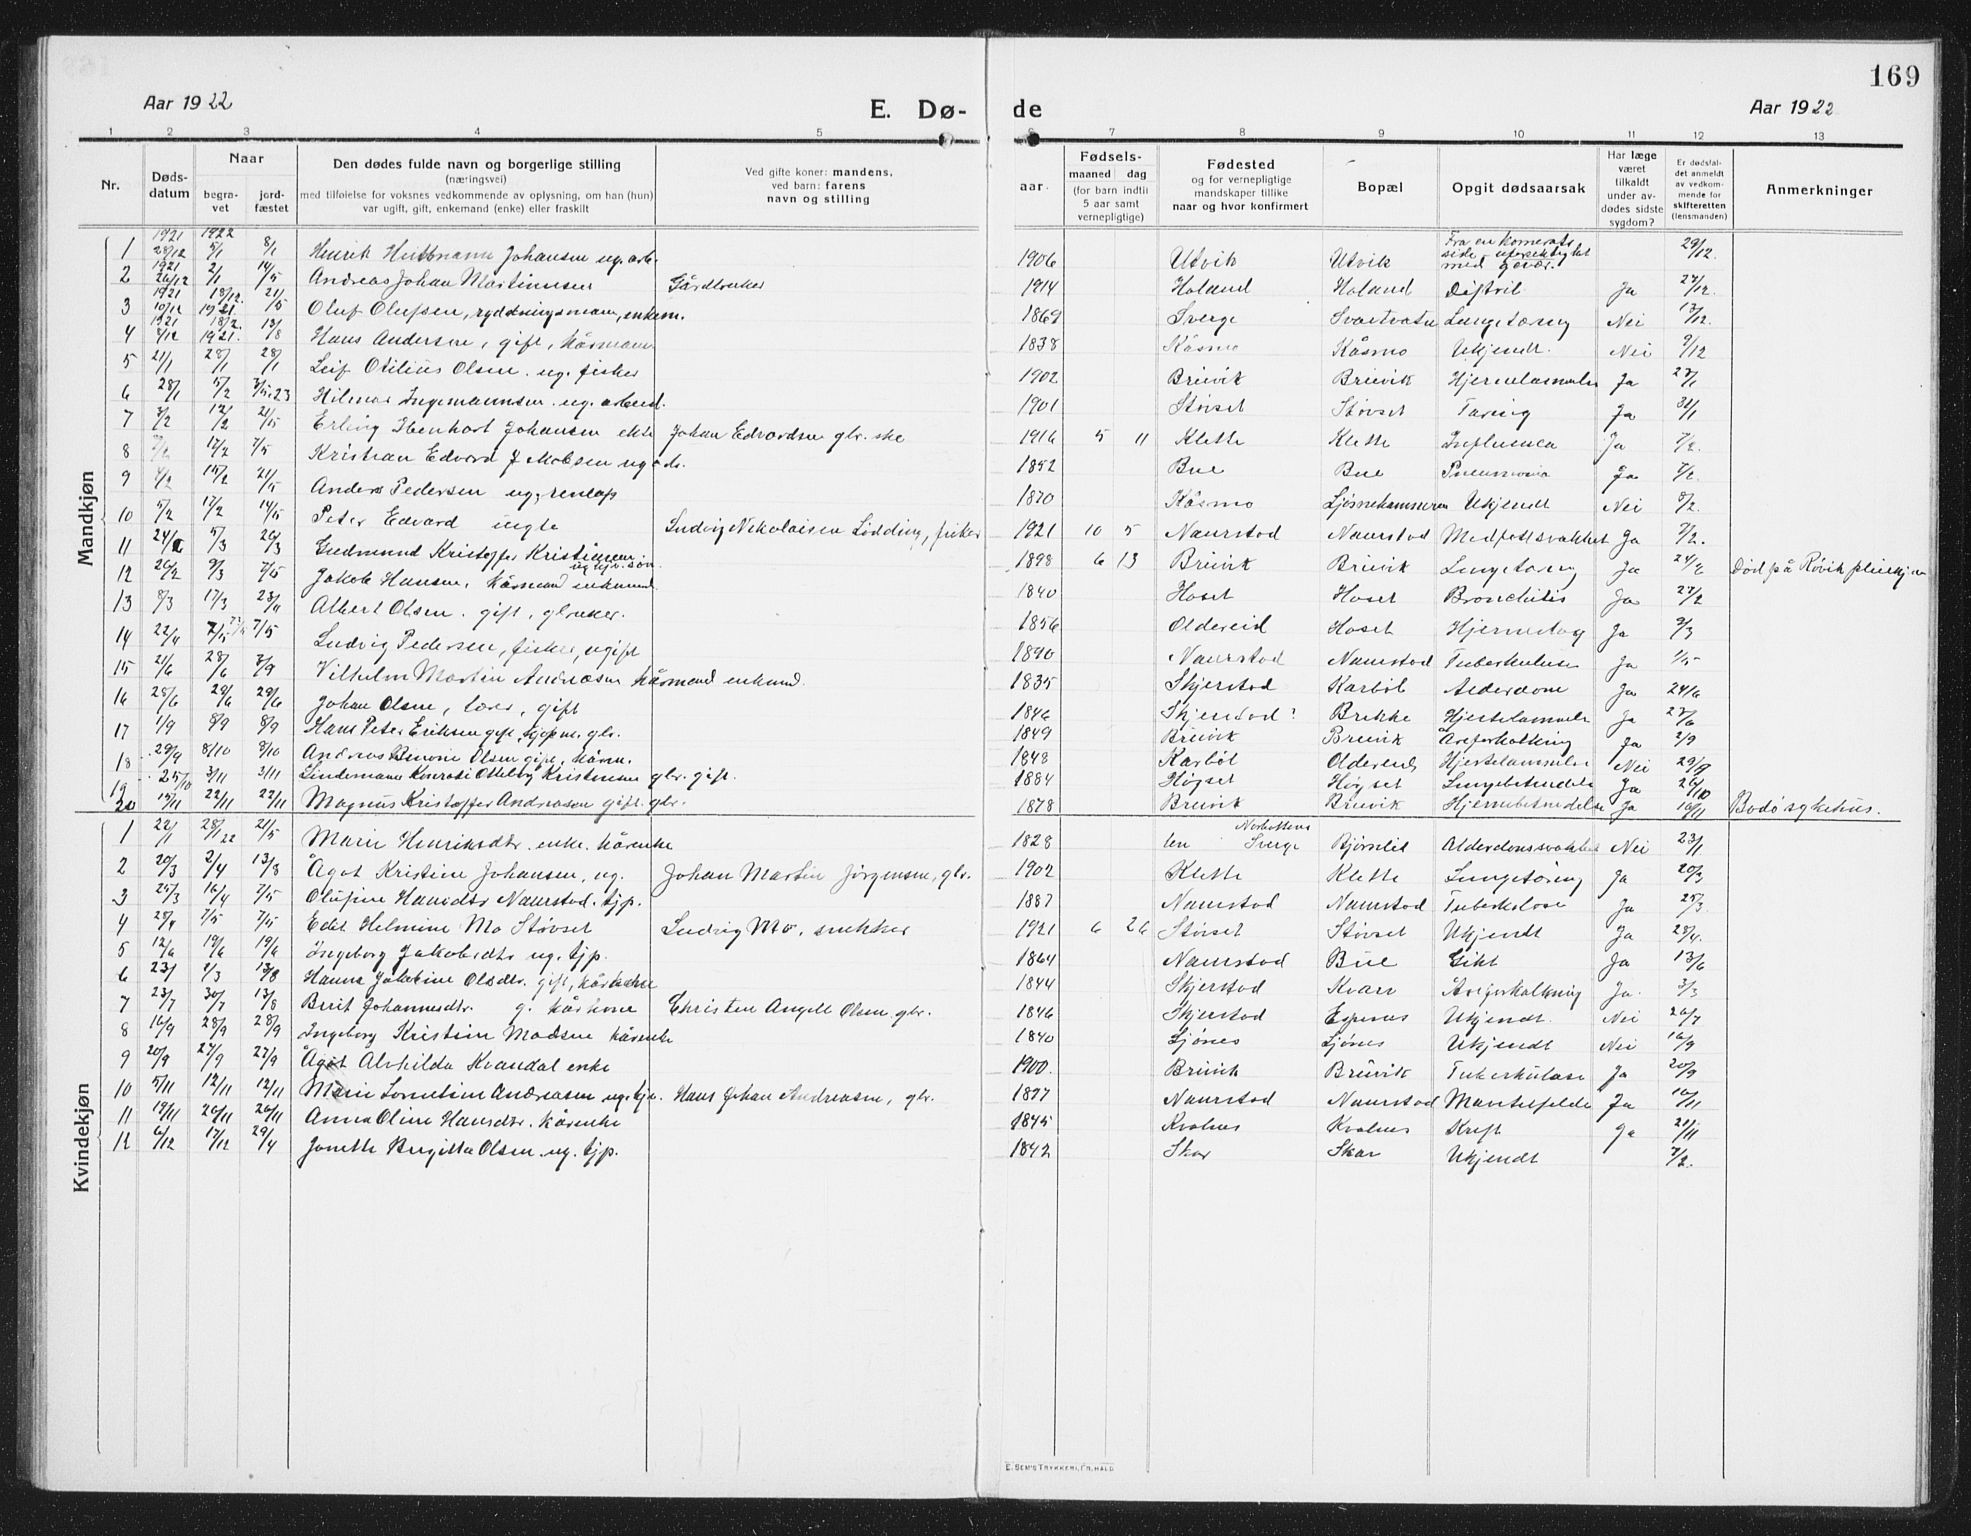 169
Aar 1922 E. Dø- de Aar 1922
1 2 3 4 5 6 7 8 9 10 11 12 13
Nr. Døds-datum Naar begra-vet jord-fæstet Den dødes fulde navn og borgerlige stilling (næringsvei) med tilføielse for voksnes vedkommende av oplysning, om han (hun) var ugift, gift, enkemand (enke) eller fraskilt Ved gifte koner: mandens, ved barn: farens navn og stilling aar. Fødsels- maaned dag (for barn indtil 5 aar samt vernepligtige) Fødested og for vernepligtige mandskaper tillike naar og hvor konfirmert Bopæl Opgit dødsaarsak Har læge været tilkaldt under av-dødes sidste sygdom? Er dødsfal-det anmeldt av vedkom-mende for skifteretten (lensmanden) Anmerkninger
Mandkjøn
1 1921 28/12 1922 5/1 8/1 Henrik Johansen ug. arb. 1906 Utvik Utvik Fra en kamerats side uforsiktighet med gevær. 29/12.
2 1921 26/12 2/1 14/5 Andreas Johan Martinussen Gårdbruker 1914 Holand Holand Difteri Ja 27/12.
3 1921 10/12 18/12. 1921 21/5 Oluf Olufsen, rydningsmann, enkem. 1869 Sverge Svartvatn Lungetæring Nei 13/12.
4 1921 4/12 18/2. 1921. 13/8 Hans Andersen, gift, kårmann 1838 Kåsmo Kåsmo Ukjendt. Nei 9/12
5 21/1 28/1 28/1 Leif Otilius Olsen. ug. fisker 1902 Breivik Breivik Hjernelammelse Ja 23/1
6 28/1 5/2 3/5.23 Hilmar Ingemannsen. ug. arbeid. 1901 Støvset Støvset Tæring Ja 31/1
7 3/2 12/2 21/5 Erling Ibenhart Johansen ekte Johan Edvardsen gbr. ske 1916 5 11 Klette Klette Influenca Ja 7/2.
8 17/2 7/5 Kristian Edvard Jakobsen ug. 1852 Bue Bue Pneumonia Ja
9 4/2 15/2 21/5 Anders Pedersen ug. renlap 1870 Kåsmo Ukjendt Nei 8/2
10 5/2 17/2 14/5 Peter Edvard uegte Ludvig Nikolaisen Lødding, fisker 1921 10 5 Naurstad Naurstad Medfødt svakhet Ja 7/2.
11 24/2 5/3 26/3 Gudmund Kristoffer Kristiansen ug. gbr. søn. 1898 6 13 Breivik Breivik Lungetæring Ja 24/2 Død på Røvik pleiehjem
12 26/2 9/3 7/5 Jakob Hansen, kårmand enkemand. 1840 Hoset Hoset Bronchitis Ja 27/2
13 8/3 17/3 23/4 Albert Olsen. gift, gbruker. 1856 Oldereid Hoset Hjerneslag Ja 9/3
14 22/4 7/5 7/5 Ludvig Pedersen, fisker, ugift 1890 Naurstad Naurstad Tuberkulose Ja 1/5
15 21/6 28/6 3/9 Vilhelm Martin Andreasen kårmand enkemd. 1835 Skjerstad Karbøl Alderdom Ja 24/6
16 25/6 29/6 29/6 Johan Olsen, lærer, gift 1846 Skjerstad? Brekke Hjertelammelse Ja 27/6
17 1/9 8/9 8/9 Hans Peter Eriksen gift, gbr. 1849 Breivik Breivik Åreforkalkning Ja 2/9
18 29/9 8/10 8/10 Andreas Benoni Olsen gift, kårm. 1848 Karbøl Oldereid Hjertelammelse Nei 29/9
19 25/10 3/11 3/11 Lindemann Konrad Otteberg Kristensen gbr. gift. 1884 Høgset Høgset Lungebetændelse Ja 26/10
20 15/11 22/11 22/11 Magnus Kristoffer Andreasen gift. gbr. 1878 Breivik Breivik Hjernebetændelse Ja 16/11 Bodø sykehus.
Kvindekjøn
1 22/1 28/1 22 21/5 Marie Henriksdtr. enke. kårenke 1828 Norbottens len Sverge Bjørnlid Alderdomssvakhet Nei 23/1
2 20/3 2/4 13/8 Ågot Kristine Johansen, ug. Johan Martin Jørgensen, gbr. 1902 Klette Klette Lungetæring Ja 20/3
3 25/3 16/4 7/5 Olufine Hansdtr Naurstad. tjp. 1887 Naurstad Naurstad Tuberkulose Ja 25/3
4 28/4 7/5 7/5 Edit Helmine Mo Støvset Ludvig Mo, snekker 1921 6 26 Støvset Støvset Ukjendt Ja 28/4.
5 12/6 19/6 19/6 Ingeborg Jakobsdtr ug. tjp. 1864 Naurstad Bue Gikt Ja 13/6
6 23/1 2/3 13/8 Hanna Jakobine Olsdtr. gift, kårkone 1844 Skjerstad Kvarv Åreforkalkning Ja. 3/3
7 23/7 30/7 13/8 Berit Johannesdtr. g. kårkone Christen Angell Olsen gbr. 1846 Skjerstad Espenes Ukjendt. Nei 26/7
8 16/9 28/9 28/9 Ingeborg Kristine Madsen kårenke 1840 Ljønes Ljønes Ukjendt Nei 16/9
9 20/9 27/9 27/9 Ågot Alvhilda Kvandal enke 1900. Breivik Breivik Tuberkulose Ja 20/9
10 5/11 12/11 12/11 Marie Lorntine Andreasen ug. tjp. Hans Johan Andreasen, gbr. 1897 Naurstad Naurstad Ja 16/11
11 19/11 26/11 26/11 Anna Oline Hansdtr. kårenke 1845 Kvalnes Kvalnes Kreft Ja 21/11
12 6/12 17/12 29/4 Jonette Birgitta Olsen. ug. tjp. 1842 Skar Skar Ukjendt 7/2.
E. SEM'S TRYKKERI, FR.HALD